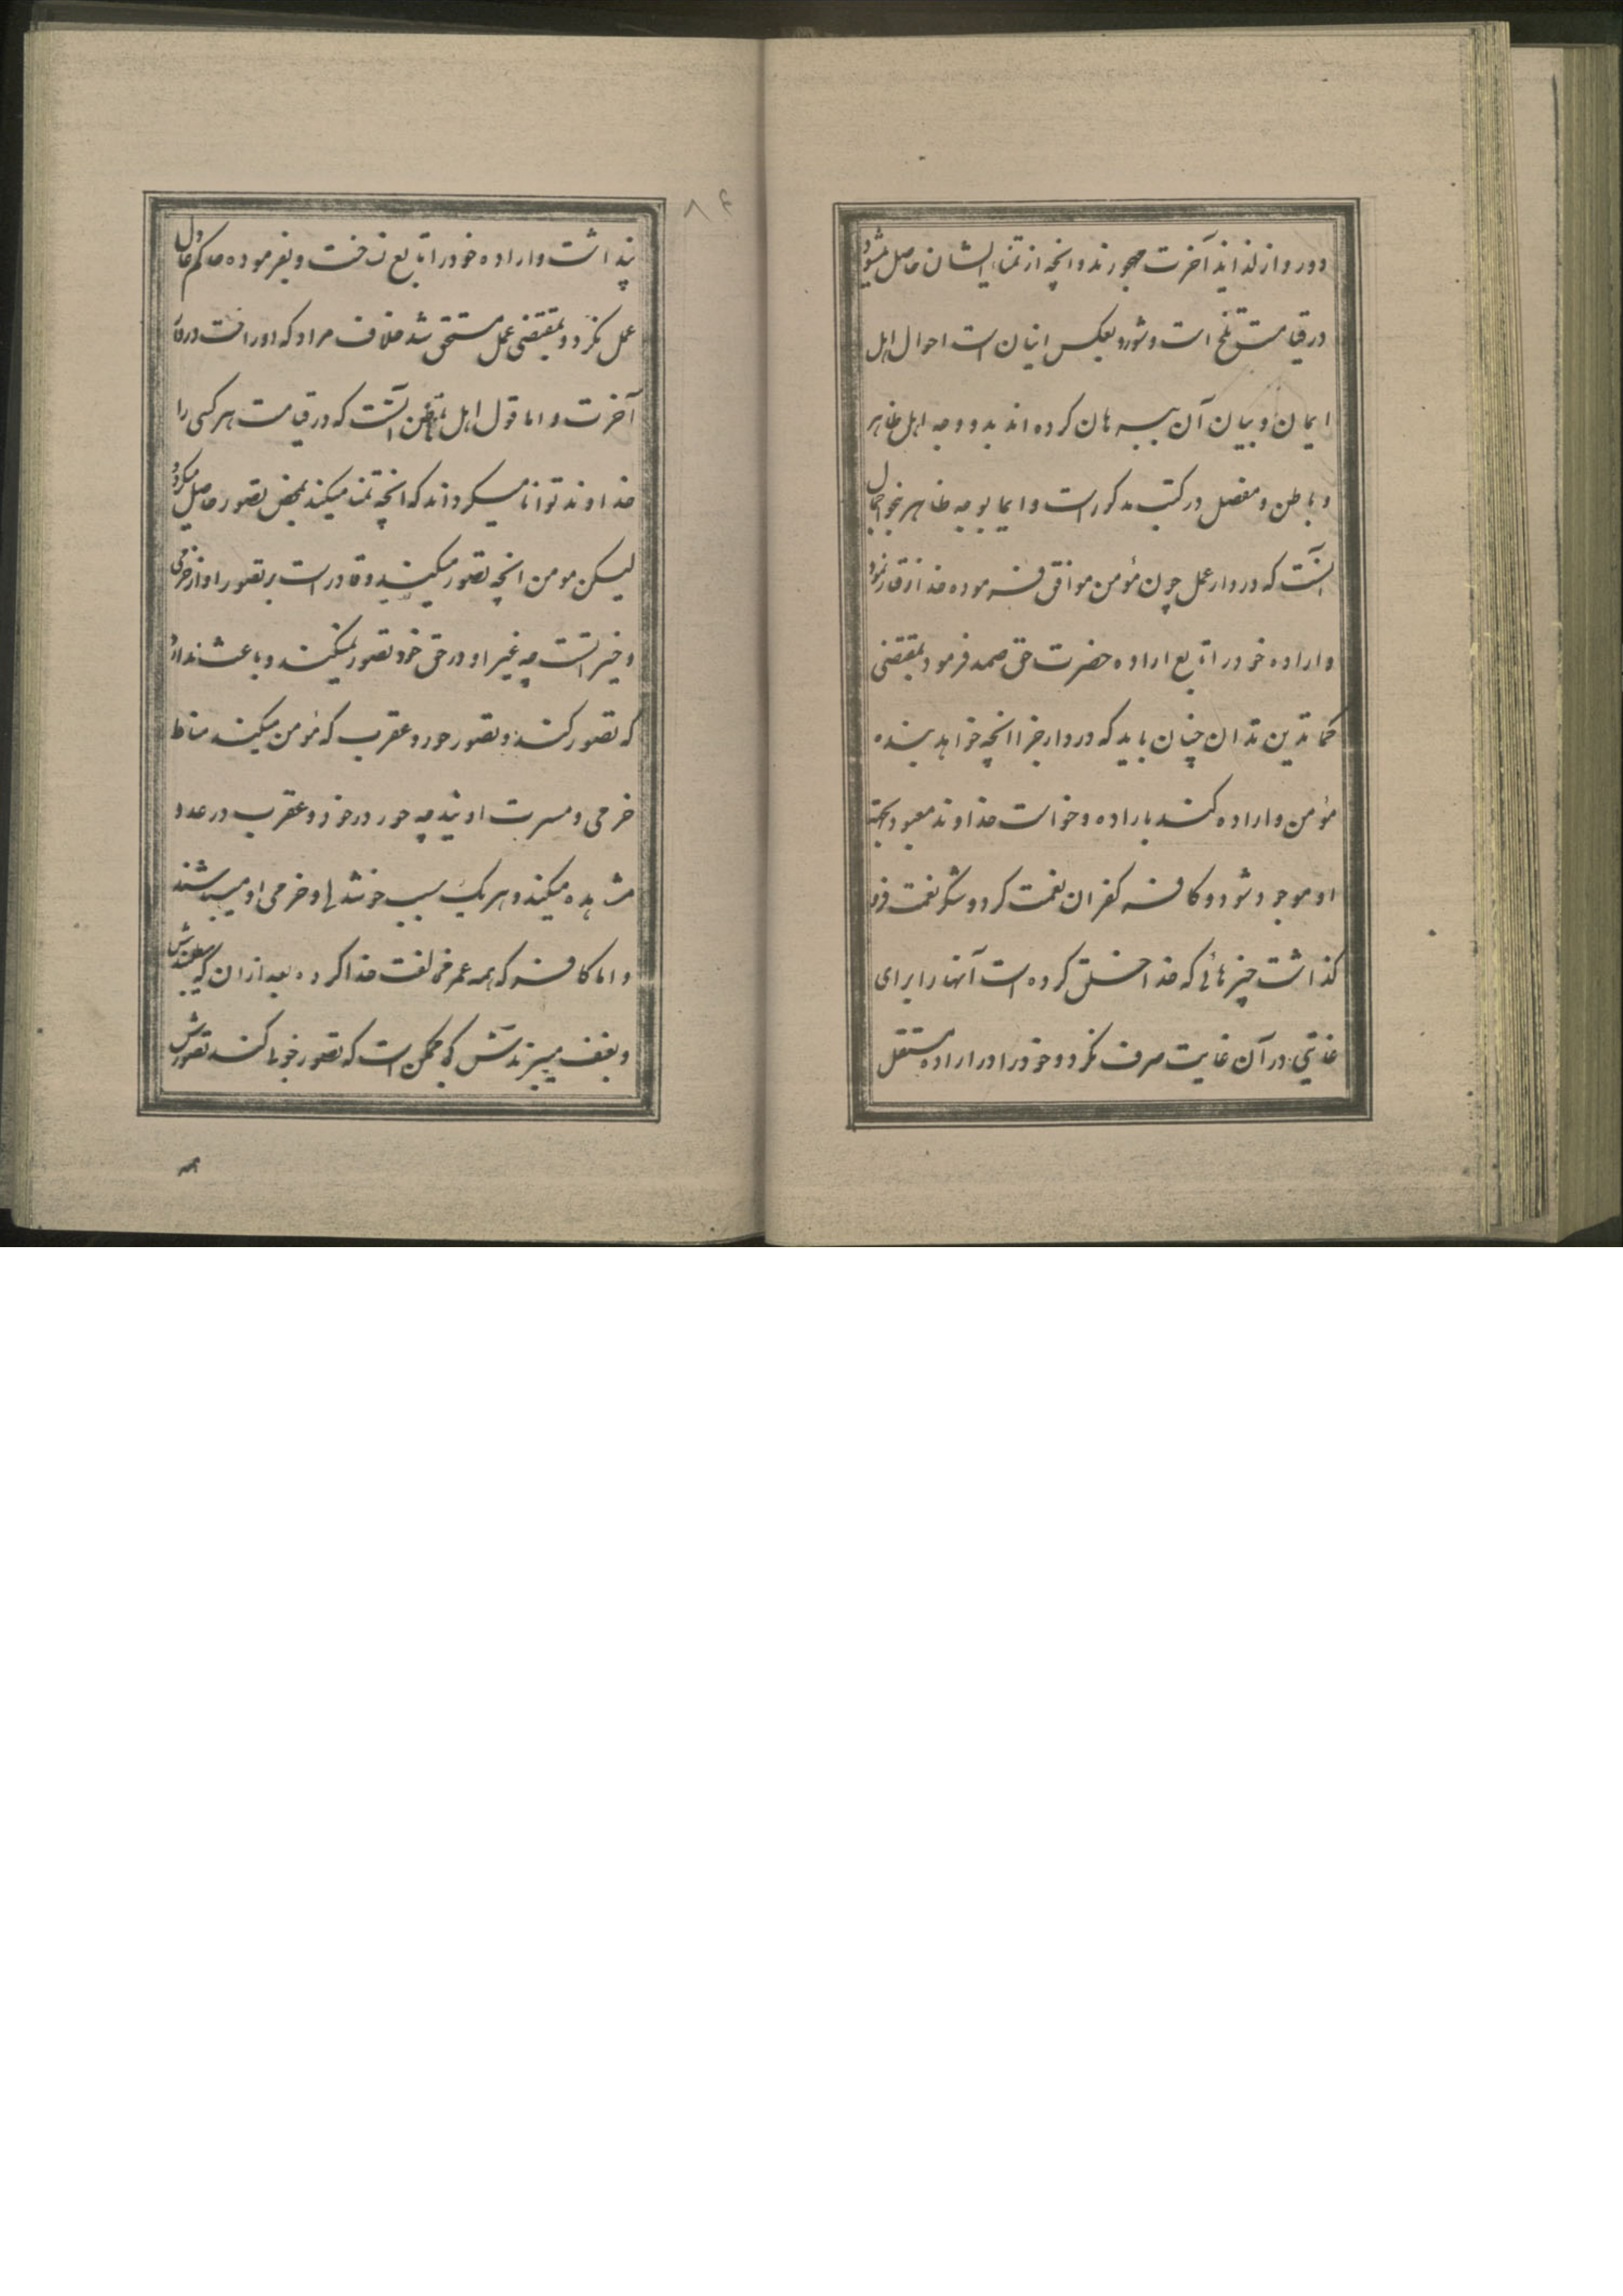 دور و از لذایذ آخرت مهجورند و آنچه از تمنای ایشان حاصل میشود
در قیامت تلخ است و شور و بعکس اینان است احوال اهل
ایمان و بیان آن ببرهان کرده اند بدو وجه اهل ظاهر
و باطن و مفصل در کتب مذکور است و ایما بوجه ظاهر بنحو اجمال
آنست که در دار عمل چون مؤمن موافق فرموده خدا رفتار نمود
و اراده خود را تابع اراده حضرت حق صمد فرمود بمقتضی
کما تدین تدان چنان باید که در دار جزا آنچه خواهد بنده
مؤمن و اراده کند باراده و خواست خداوند معبود بجهة
او موجود شود و کافر کفران نعمت کرد و شکر نعمت فرو
گذاشت چیزهائی که خدا خلق کرده است آنها را برای
غایتی در آن غایت صرف نکرد و خود را در اراده مستقل
۸۴
پنداشت و اراده خود را تابع نساخت و بفرموده حاکم عادل
عمل نکرد و بمقتضی عمل مستحق شد خلاف مراد که دور افتد در
آخرت و اما قول اهل باطن آنست که در قیامت هر کسی را
خداوند توانا میگرداند که آنچه تمنا میکند بمحض تصور حاصل میگردد
لیکن مومن آنچه تصور میکند و قادر است بر تصور او از خرمی
و خیر است چه غیر او در حق خود تصور نمیکند و باعث ندارد
که تصور کند و تصور حور و عقرب که مؤمن میکند مناط
خرمی و مسرت اویند چه حور در خود و عقرب در عدو
مشاهده میکند و هر یک سبب خوشدلی و خرمی او میباشند
و اما کافر که همه عمر مخالفت خدا کرده بعد از آن که
و بعنف میبرندش کی ممکن است که تصور خوبها کند تصورش
همه